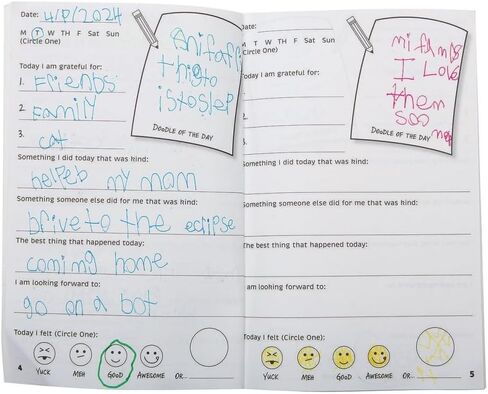 Date: 4/8/2024
M T W TH F Sat Sun
(Circle One)
thigto
istoslep
DOODLE OF THE DAY
Today I am grateful for:
1. Friends
2. Family
3. cat
Something I did today that was kind:
helpeb my mom
Something someone else did for me that was kind:
brive to the eclipse
The best thing that happened today:
coming home
I am looking forward to:
go on a bot
Today I felt (Circle One):
YUCK MEH GOOD AWESOME OR...
4
Date:
M T W TH F Sat Sun
(Circle One)
I LOVE
them
soo
DOODLE OF THE DAY
Today I am grateful for:
1.
2.
3.
Something I did today that was kind:
Something someone else did for me that was kind:
The best thing that happened today:
I am looking forward to:
Today I felt (Circle One):
YUCK MEH GOOD AWESOME OR...
5